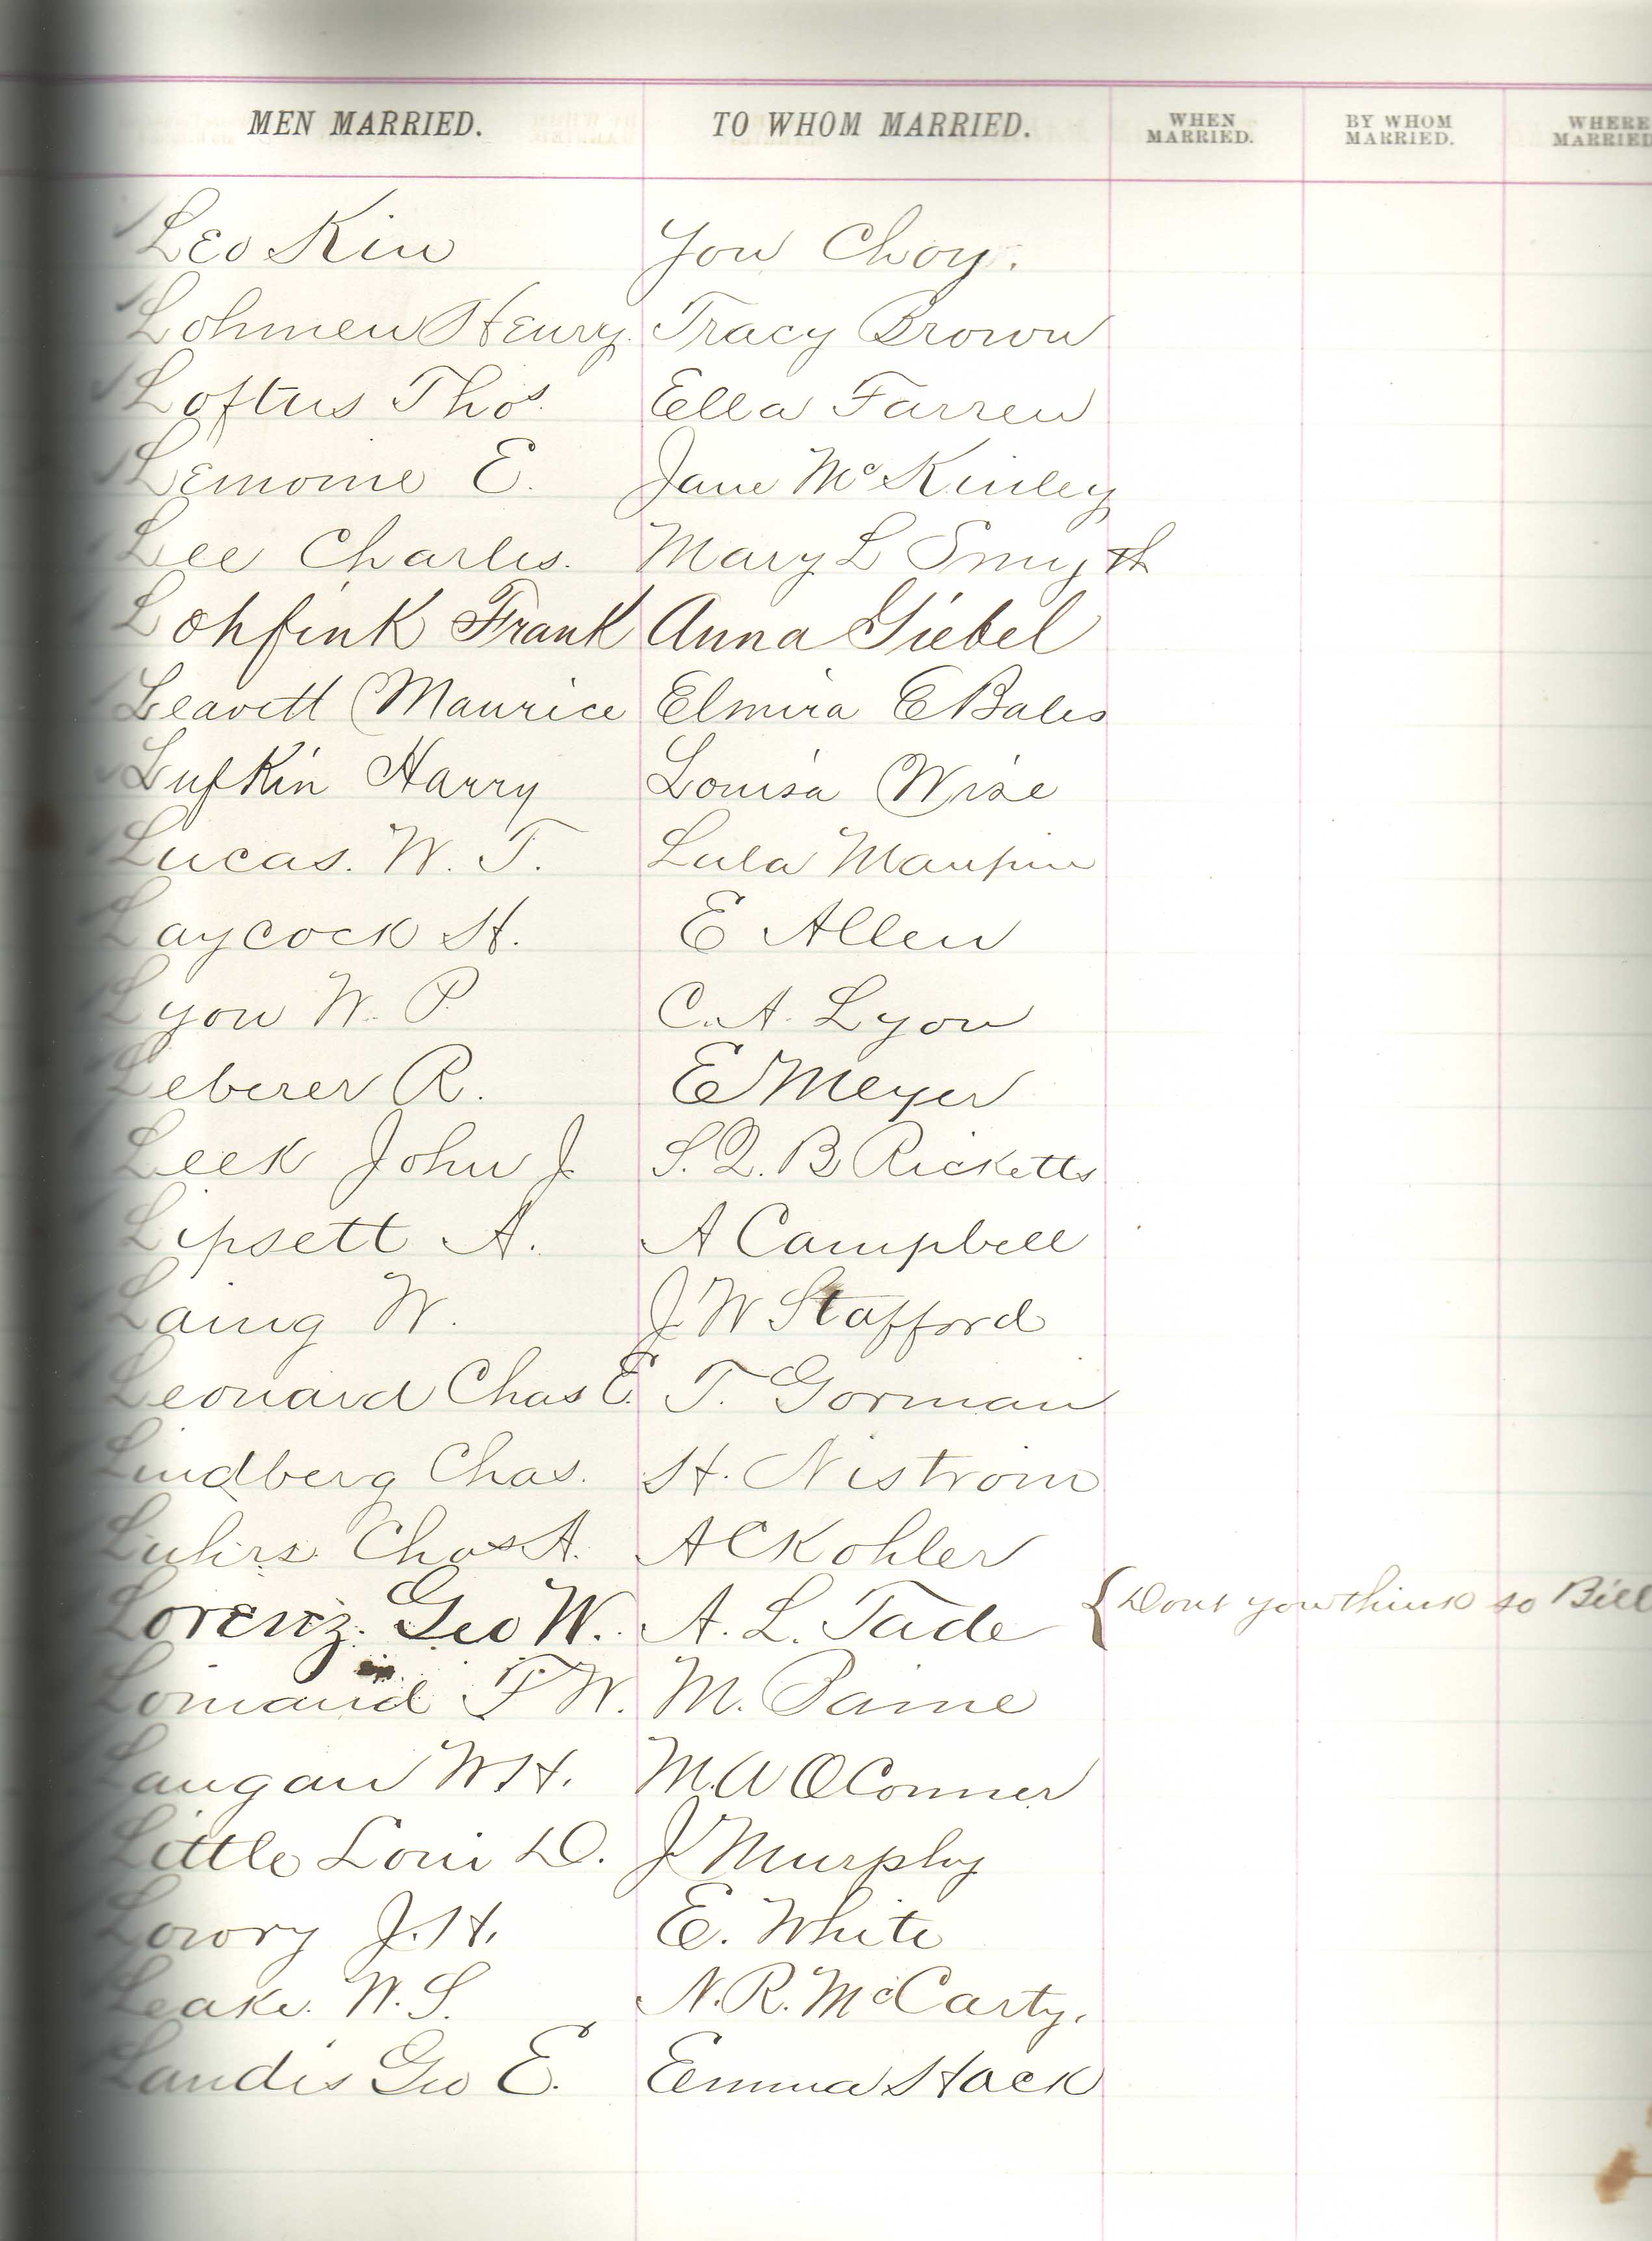 MEN MARRIED. TO WHOM MARRIED. WHEN MARRIED. BY WHOM MARRIED. WHERE MARRIED
Leo Kin You Choy.
Lohmen Henry. Tracy Brown
Loftus Thos. Ella Farren
Lemoine E. Jane McKinley
Lee Charles. Mary L Smyth
Lohfink Frank Anna Giebel
Leavett Maurice Elmira E Bales
Lufkin Harry Louisa Wise
Lucas. W. T. Lula Maupin
Laycock H. E Allen
Lyon W. P. C. A. Lyon
Leberer R. E Meyer
Leek John J. S. Q. B Ricketts
Lipsett A. A Campbell
Laing W. J. W Stafford
Leonard Chas E. T. Gorman
Lindberg Chas. H. Nistrom
Luhrs Chas A. A C Kohler
Lorenz. Geo W. A. L. Tade { Dont you think so Bill
Lomand F W. M. Paine
Langan W H. M. A OConner
Little Loui D. J Murphy
Lowry J. H. E. White
Leake. W. S. N. R. McCarty.
Landis Geo E. Emma Hack